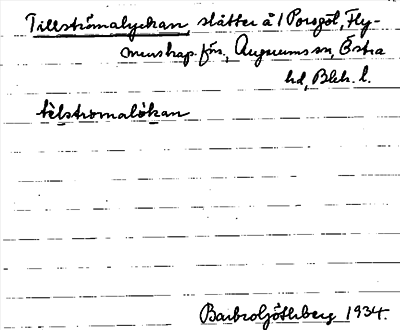 Tillströmalyckan, slåtter å 1 Porsgöl, Fly-
menshap. förs., Augerums sn, Östra
hd, Blek. l.
tèlstromalökan
Barbro Göthberg 1934.